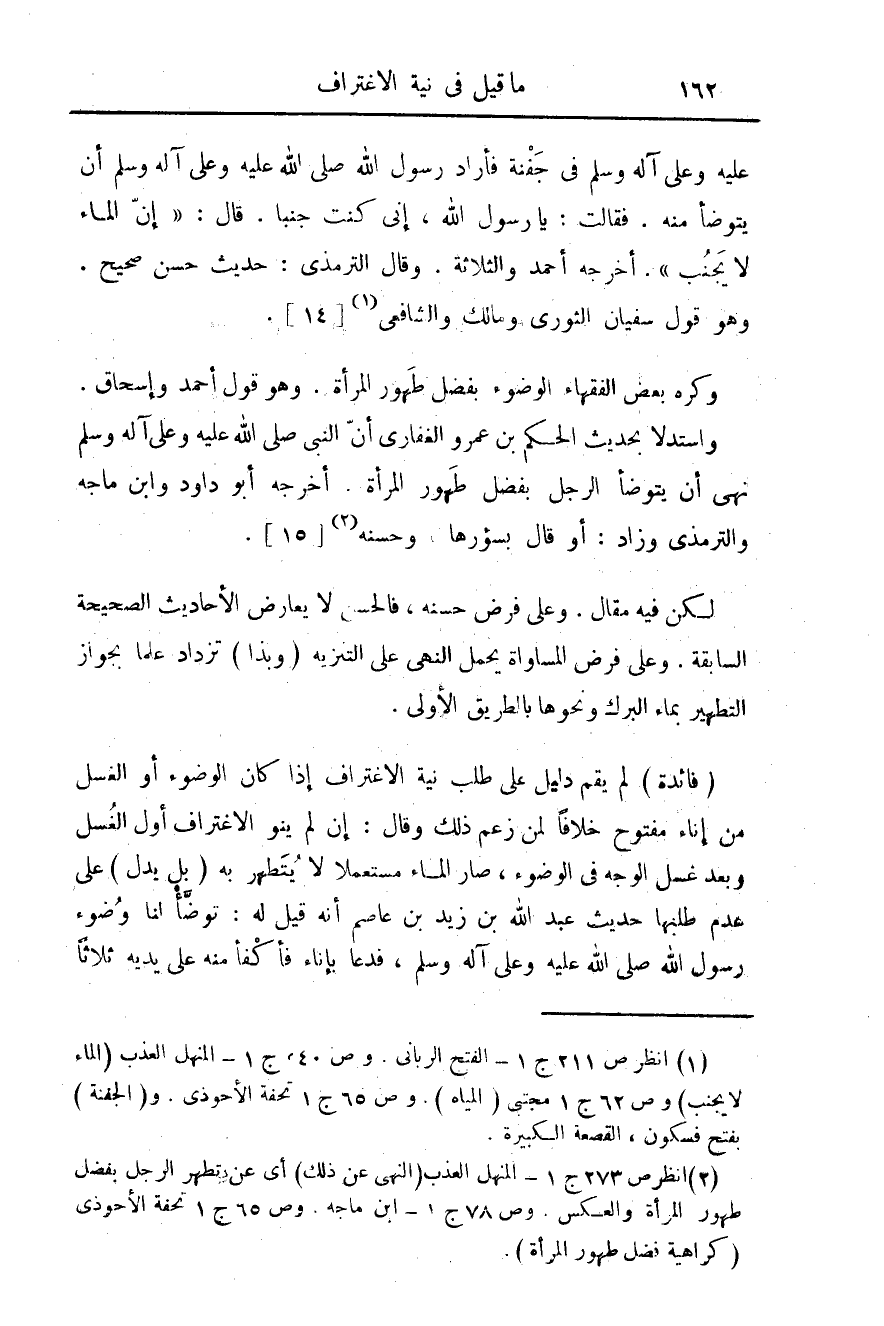 ١٦٢ ما قيل فى نية الاغتراف
عليه وعلى آله وسلم فى جَفْنة فأراد رسول الله صلى الله عليه وعلى آله وسلم أن
يتوضأ منه . فقالت : يا رسول الله ، إنى كنت جنبا . قال : « إنّ الماء
لا يَجنُب » . أخرجه أحمد والثلاثة . وقال الترمذى : حديث حسن صحيح .
وهو قول سفيان الثورى ومالك والشافعى(١) [ ١٤ ] .
وكره بعض الفقهاء الوضوء بفضل طَهور المرأة . وهو قول أحمد وإسحاق .
واستدلا بحديث الحكم بن عمرو الغفارى أنّ النبى صلى الله عليه وعلى آله وسلم
نهى أن يتوضأ الرجل بفضل طَهور المرأة . أخرجه أبو داود وابن ماجه
والترمذى وزاد : أو قال بسؤرها . وحسنه(٢) [ ١٥ ] .
لكن فيه مقال . وعلى فرض حسنه ، فالحسن لا يعارض الأحاديث الصحيحة
السابقة . وعلى فرض المساواة يحمل النهى على التنزيه ( وبذا ) تزداد علما بجواز
التطهير بماء البرك ونحوها بالطريق الأولى .
( فائدة ) لم يقم دليل على طلب نية الاغتراف إذا كان الوضوء أو الغسل
من إناء مفتوح خلافًا لمن زعم ذلك وقال : إن لم ينو الاغتراف أول الغُسل
وبعد غسل الوجه فى الوضوء ، صار الماء مستعملا لا يُتَطهر به ( بل يدل ) على
عدم طلبها حديث عبد الله بن زيد بن عاصم أنه قيل له : توضَّأْ لنا وُضوء
رسول الله صلى الله عليه وعلى آله وسلم ، فدعا بإناء فأكْفأ منه على يديه ثلاثًا
(١) انظر ص ٢١١ ج ١ – الفتح الربانى . و ص ٢٤٠ ج ١ – المنهل العذب (الماء
لا يجنب) و ص ٦٢ ج ١ مجتبى ( المياه ) . و ص ٦٥ ج ١ تحفة الأحوذى . و( الجفنة )
بفتح فسكون ، القصعة الكبيرة .
(٢) انظر ص ٢٧٣ ج ١ – المنهل العذب (النهى عن ذلك) أى عن تطهر الرجل بفضل
طهور المرأة والعكس . وص ٧٨ ج ١ – ابن ماجه . وص ٦٥ ج ١ تحفة الأحوذى
( كراهية فضل طهور المرأة ) .